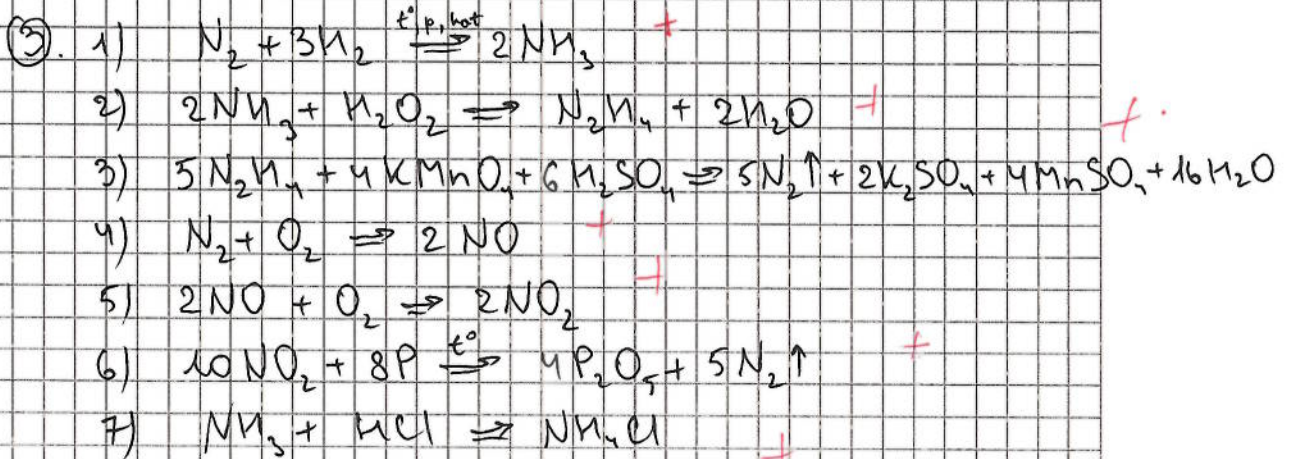 3. 1) N₂ + 3H₂ t°, p, kat ⇒ 2NH₃ +
2) 2NH₃ + H₂O₂ ⇒ N₂H₄ + 2H₂O +
3) 5N₂H₄ + 4KMnO₄ + 6H₂SO₄ ⇒ 5N₂↑ + 2K₂SO₄ + 4MnSO₄ + 16H₂O +
4) N₂ + O₂ ⇒ 2NO +
5) 2NO + O₂ ⇒ 2NO₂ +
6) 10NO₂ + 8P t° ⇒ 4P₂O₅ + 5N₂↑ +
7) NH₃ + HCl ⇒ NH₄Cl +